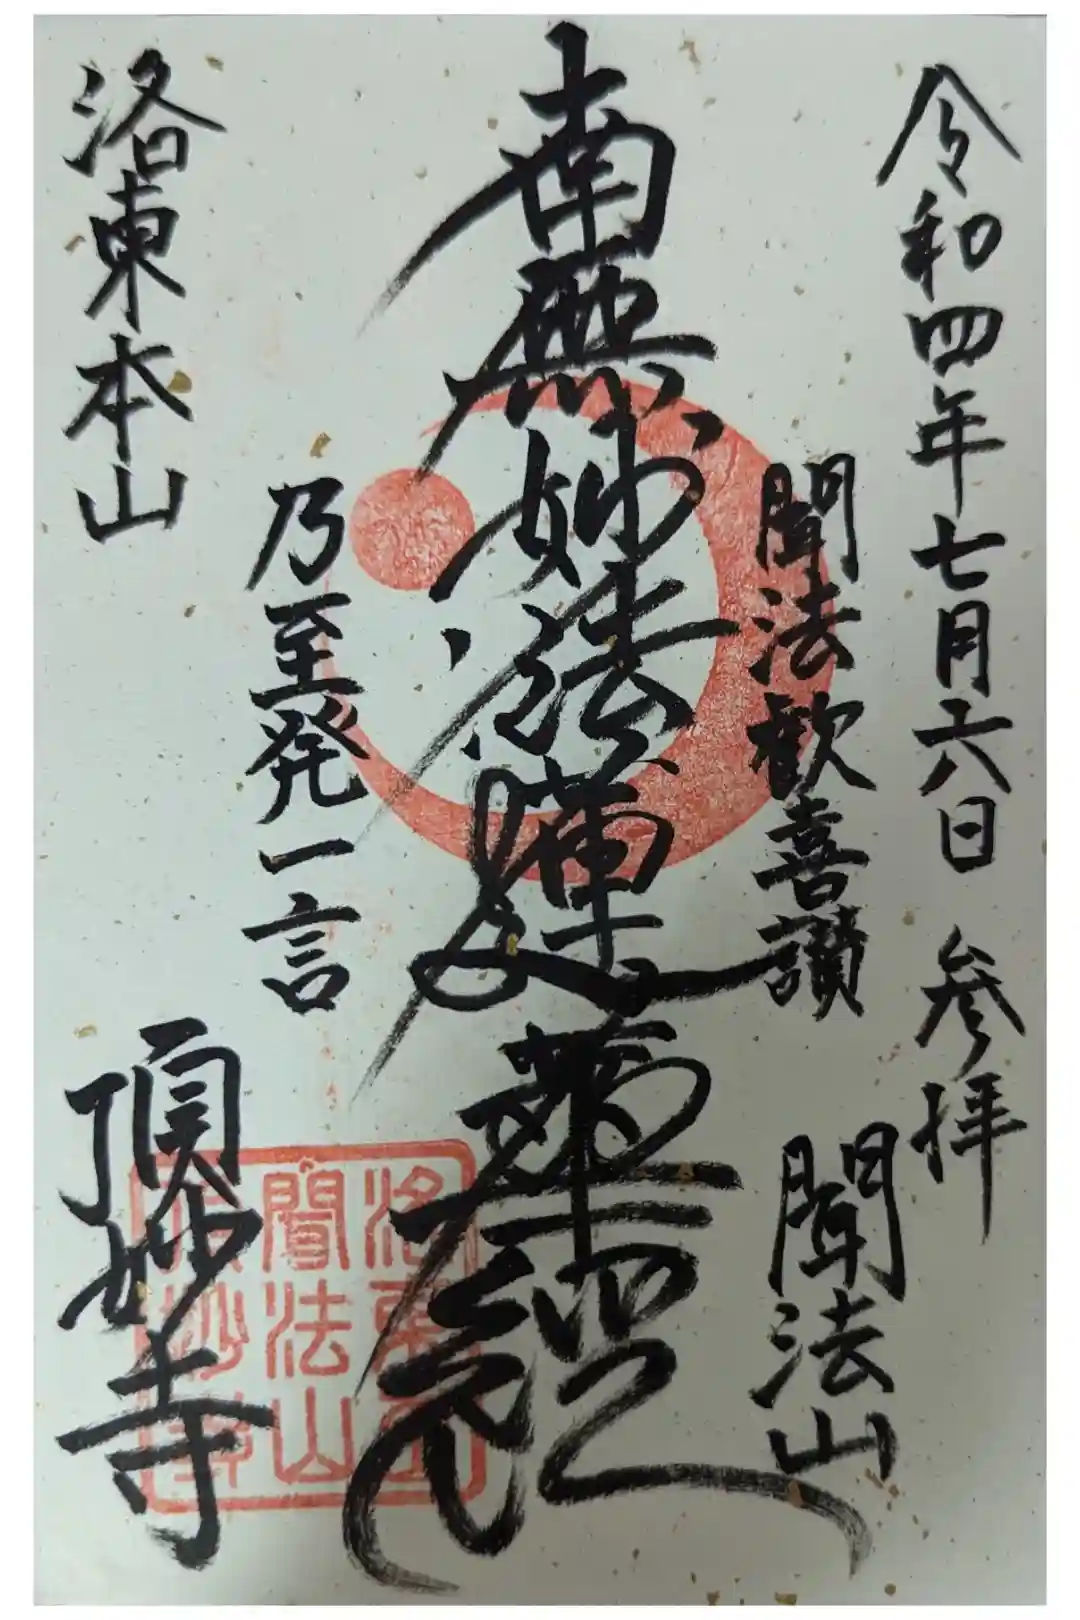 令和四年七月六日 参拝
聞法山
聞法歓喜讃
南無妙法蓮華経
乃至発一言
洛東本山
頂妙寺
洛東
聞法山
頂妙寺